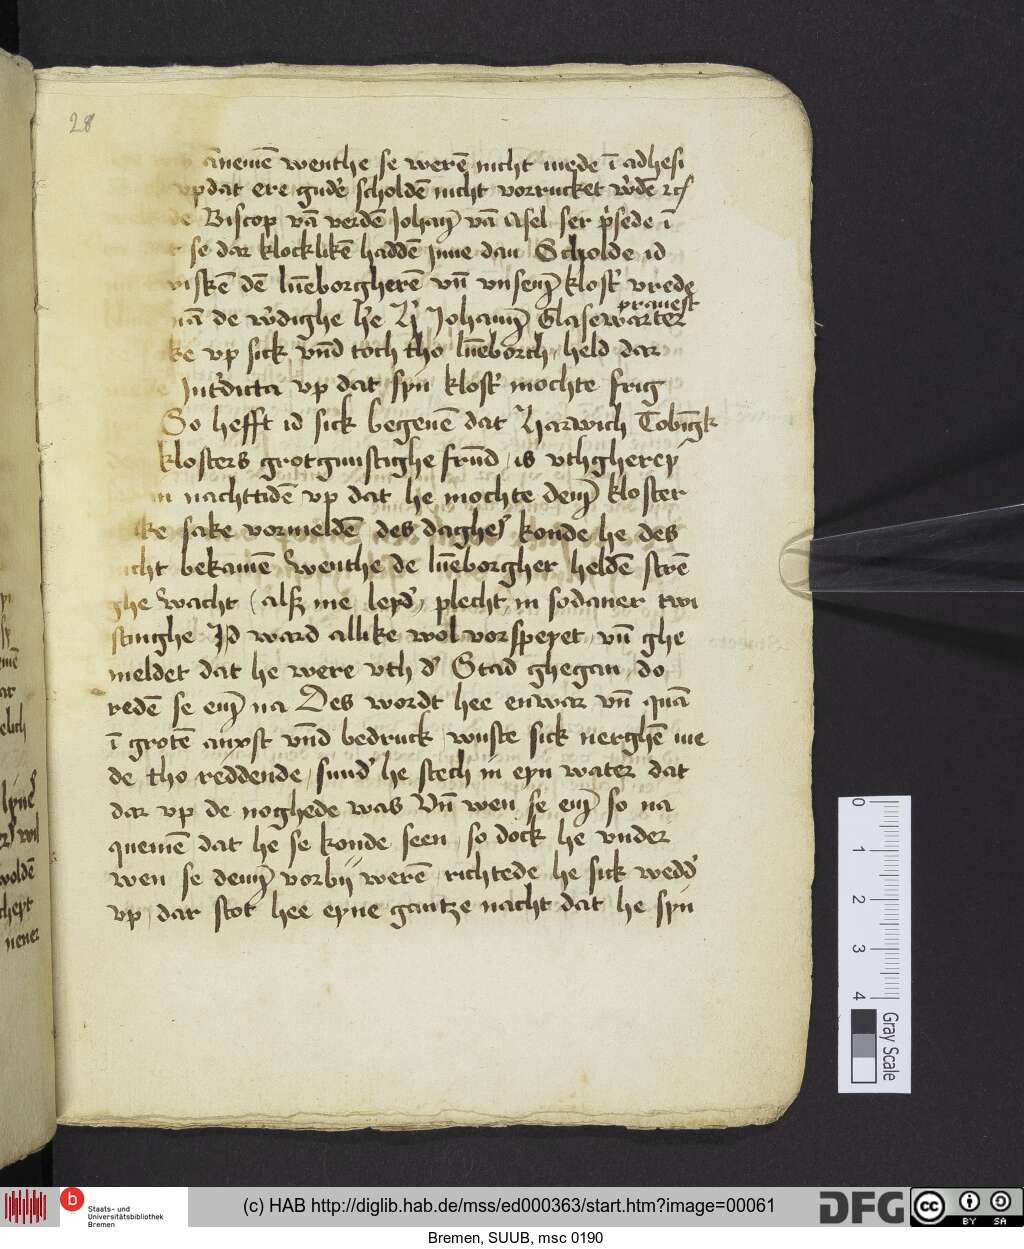 28
ānemē wenthe se werē nicht mede ī adhesi
vpdat ere gudē scholdē nicht vorrucket wdē
de Biscop vā verdē Johan vā Asel ser psede ī
se dar klocklikē haddē Jnne dan Scholde id
viskē dē lūeborgherē vn̄ vnsem klost vrede
prauest
nā de wdighe he H Johann Glasewarter
ke vp sick vn̄d toch tho lūeborch held dar
Jntdicta vp dat syn klost mochte frig
So hefft id sick begeuē dat Harwich Tobīgk
klosters grotgunstighe frūd is vthgherey
in nachttidē vp dat he mochte dem kloster
ke sake vormeldē des daghes konde he des
icht bekamē wenthe de lūeborgher heldē strē
ghe wacht (als me leyd plecht in sodaner twi
stinghe Jd ward allike wol vorspeyet vn̄ ghe
meldet dat he were vth d Stad ghegan do
redē se em na Des wordt hee enwar vn̄ quā
ī grotē anxst vn̄d bedruck wuste sick nerghē me
de tho reddende sund he stech in eyn water dat
dar vp de noghede was Vn̄ wen se em so na
quemē dat he se konde seen so dock he vnder
wen se dem vorbij werē richtede he sick wedd
vp dar stot hee eyne gantze nacht dat he syn
lyne
wil
woldē
nener
0 1 2 3 4
Gray Scale
b Staats- und
Universitätsbibliothek
Bremen
(c) HAB http://diglib.hab.de/mss/ed000363/start.htm?image=00061
DFG
cc BY SA
Bremen, SUUB, msc 0190